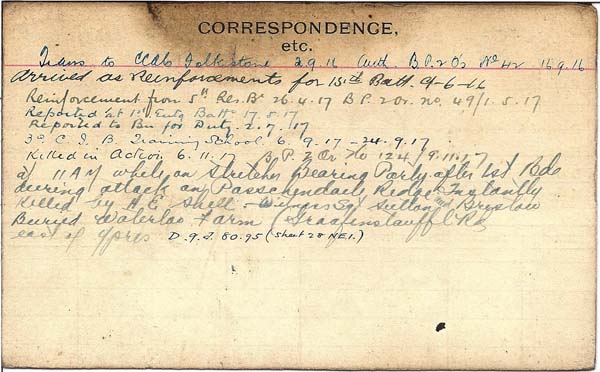 CORRESPONDENCE,
etc.
Trans to CCAC Folkestone 2 9 16 Auth. B P. 2 O's No 42 16 9. 16
Arrived as Reinforcements for 15th Batt. 9-6-16
Reinforcement from 5th Res. Bn 26. 4. 17 B P. 2 Or. no. 49/1. 5. 17
Reported at 1st Entg Batt 17. 5. 17
Reported to Bn for Duty. 2. 7. 17
3rd C. I. B Training School 6. 9. 17 - 24. 9. 17
Killed in Action 6. 11. 17 B. P. 2 Or. No 124/9. 11. 17
at 11 AM while on Stretcher Bearing Party after 1st Bde
during attack on Passchendaele Ridge Instantly
killed by H. E. Shell - Sutton and Bryslow
Buried Waterloo Farm (Graafenstaffl Rd
east of Ypres D. 9. d. 80.95 (Sheet 28 N.E.1.)